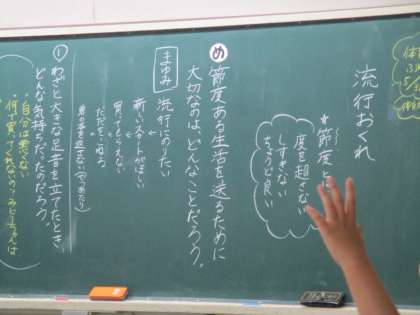 流行おくれ
*節度とは
度を超さない
しすぎない
ちょうど良い
め 節度ある生活を送るために
大切なのは、どんなことだろう。
まゆみ
流行にのりたい
新しい がほしい
買ってもらえない
だだをこねる
(やつあたり)
① わざと大きな足音を立てたとき、
どんな気持ちだったのだろう。
・自分は悪くない
・何で買ってくれないの みどりちゃんは